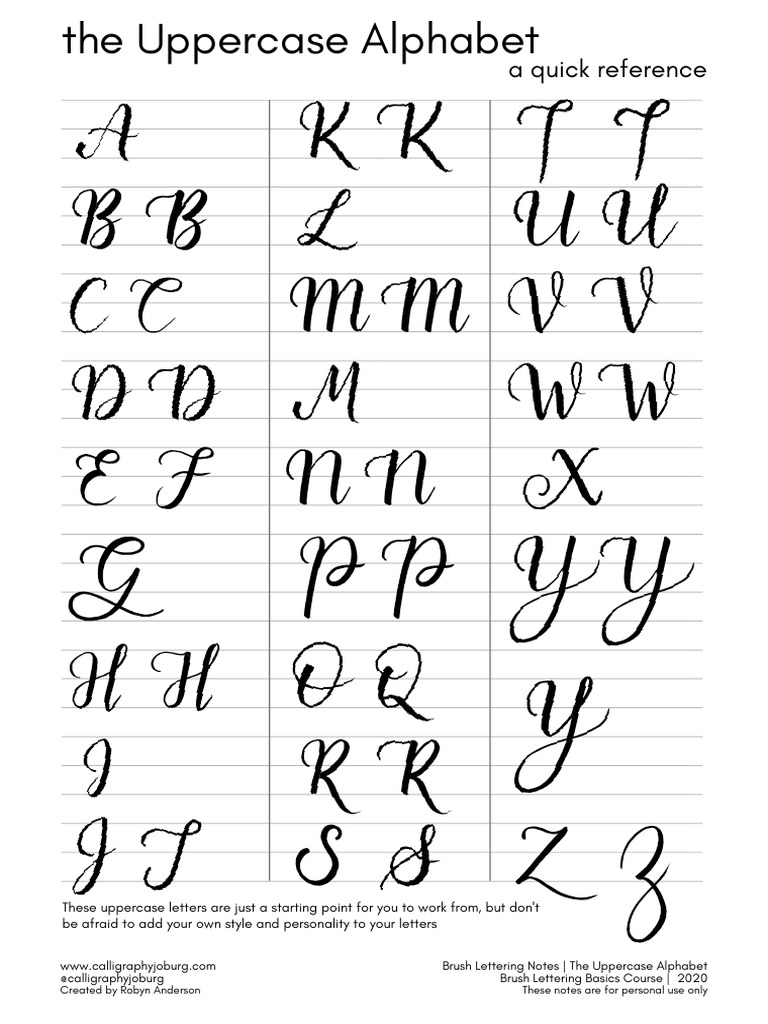 the Uppercase Alphabet
a quick reference
A
B B
C C
D D
E F
G
H H
I
J J
K K
L
M M
M
N N
P P
O Q
R R
S S
T T
U U
V V
W W
X
Y Y
Y
Z Z
These uppercase letters are just a starting point for you to work from, but don't
be afraid to add your own style and personality to your letters
www.calligraphyjoburg.com
@calligraphyjoburg
Created by Robyn Anderson
Brush Lettering Notes | The Uppercase Alphabet
Brush Lettering Basics Course | 2020
These notes are for personal use only